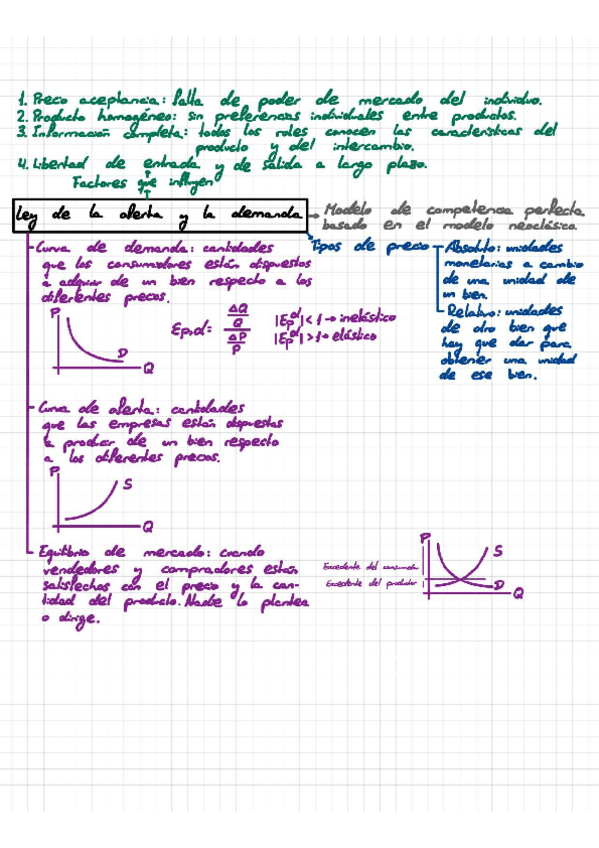 1. Precio aceptancia: falta de poder de mercado del individuo.
2. Producto homogéneo: sin preferencias individuales entre productos.
3. Información completa: todos los roles conocen las características del
producto y del intercambio.
4. Libertad de entrada y de salida a largo plazo.
Factores que influyen
Ley de la oferta y la demanda
Modelo de competencia perfecta
basado en el modelo neoclásico.
Curva de demanda: cantidades
que los consumidores están dispuestos
a adquirir de un bien respecto a los
diferentes precios.
Tipos de precio
Absoluto: unidades
monetarias a cambio
de una unidad de
un bien.
Relativo: unidades
de otro bien que
hay que dar para
obtener una unidad
de ese bien.
P
D
Q
Ep,d = ΔQ/Q / ΔP/P
|Ep^d| < 1 → inelástico
|Ep^d| > 1 → elástico
Curva de oferta: cantidades
que las empresas están dispuestas
a producir de un bien respecto
a los diferentes precios.
P
S
Q
Equilibrio de mercado: cuando
vendedores y compradores están
satisfechos con el precio y la can-
tidad del producto. Nadie lo plantea
o dirige.
P
S
Excedente del consumidor
Excedente del productor
D
Q